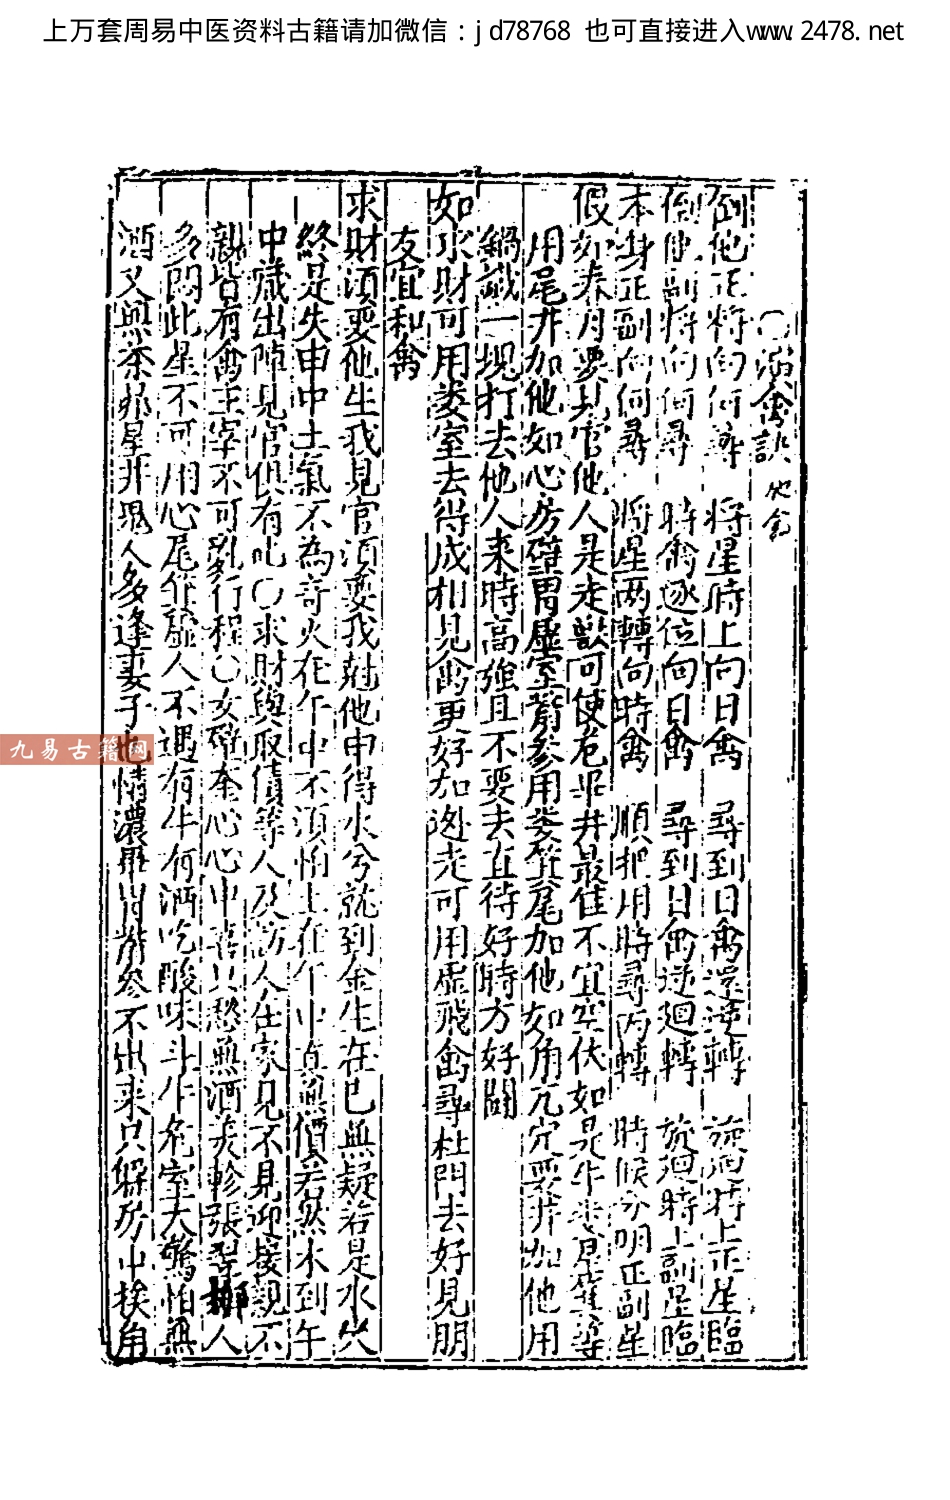 上万套周易中医资料古籍请加微信：jd78768 也可直接进入www.2478.net
演禽訣 他禽
倒他正將向何尋 將星時上向日禽 尋到日禽還逆轉 旋迴時上正星臨
倒他副將向何尋 時禽逐位向日禽 尋到日禽逆迴轉 旋迴時上副星臨
本身正副向何尋 將星兩轉向時禽 順把用時尋兩轉 時候分明正副星
假如春月要見官他人是走獸可使危畢井最佳不宜空伏如是牛 等
用尾井加他如心房 胃虛室觜參用婁 尾加他如角亢定要井加他用
鍋 一現打去他人来時高強且不要去直待好時方好鬪
如求財可用婁室去得成相見禽更好加 走可用虛飛禽尋杜門去好見朋
友宜和禽
求財須要他生我見官須要我尅他申得水兮就到金生在巳無疑若是水火
終是失申中土氣不為奇火在午中不須怕土在午中真無價若然水到午
中藏出陣見官俱有 〇求財與取債等人及訪人在家見不見迎接親不
親皆有禽主宰不可亂行程〇女 奎心心中喜只愁無酒 軫張 人
多悶此星不可用心尾 虛人不遇有牛有酒吃酸味斗牛危室大驚怕無
酒又無茶 星井鬼人多逢妻子也情濃畢胃觜參不出来只躲房中挨角
九易古籍网